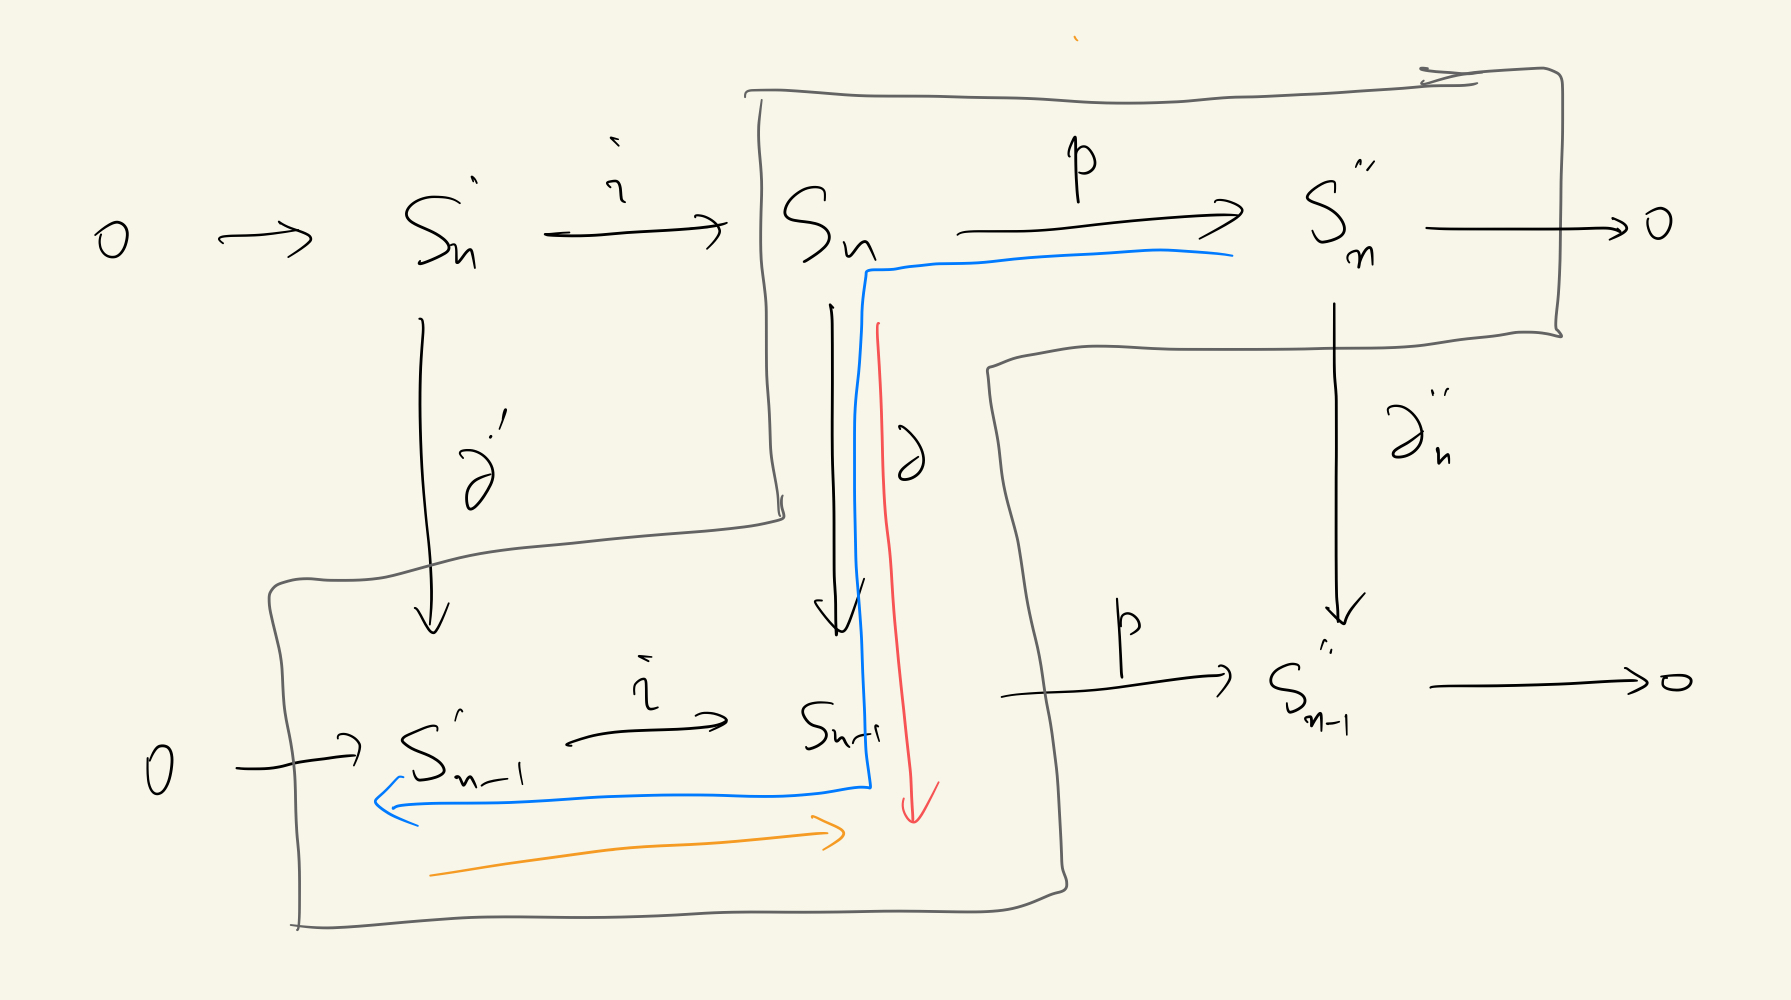 0 → S'ₙ —i→ Sₙ —p→ S''ₙ → 0
∂' ∂ ∂''ₙ
0 → S'ₙ₋₁ —i→ Sₙ₋₁ —p→ S''ₙ₋₁ → 0